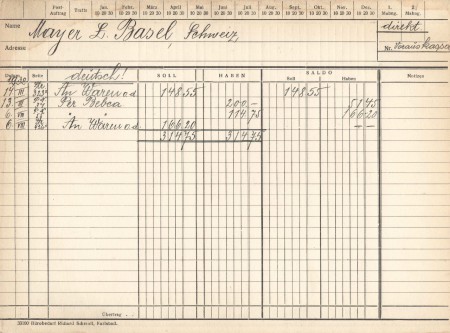 Post-Auftrag Tratte Jan. Febr. März April Mai Juni Juli Aug. Sept. Okt. Nov. Dez. 1. Mahng. 2. Mahng.
10 20 30 10 20 30 10 20 30 10 20 30 10 20 30 10 20 30 10 20 30 10 20 30 10 20 30 10 20 30 10 20 30 10 20 30
Name Mayer L. Basel, Schweiz, direkt
Adresse Nr. Vorauskassa
Datum Seite deutsch! SOLL HABEN SALDO Notizen
1930 Soll Haben
14 III An Waren 148.55 148.55
13 Per 200.- 51.45
6 VIII 114.75 166.20
6 VIII An Waren 166.20
314.75 314.75
Übertrag